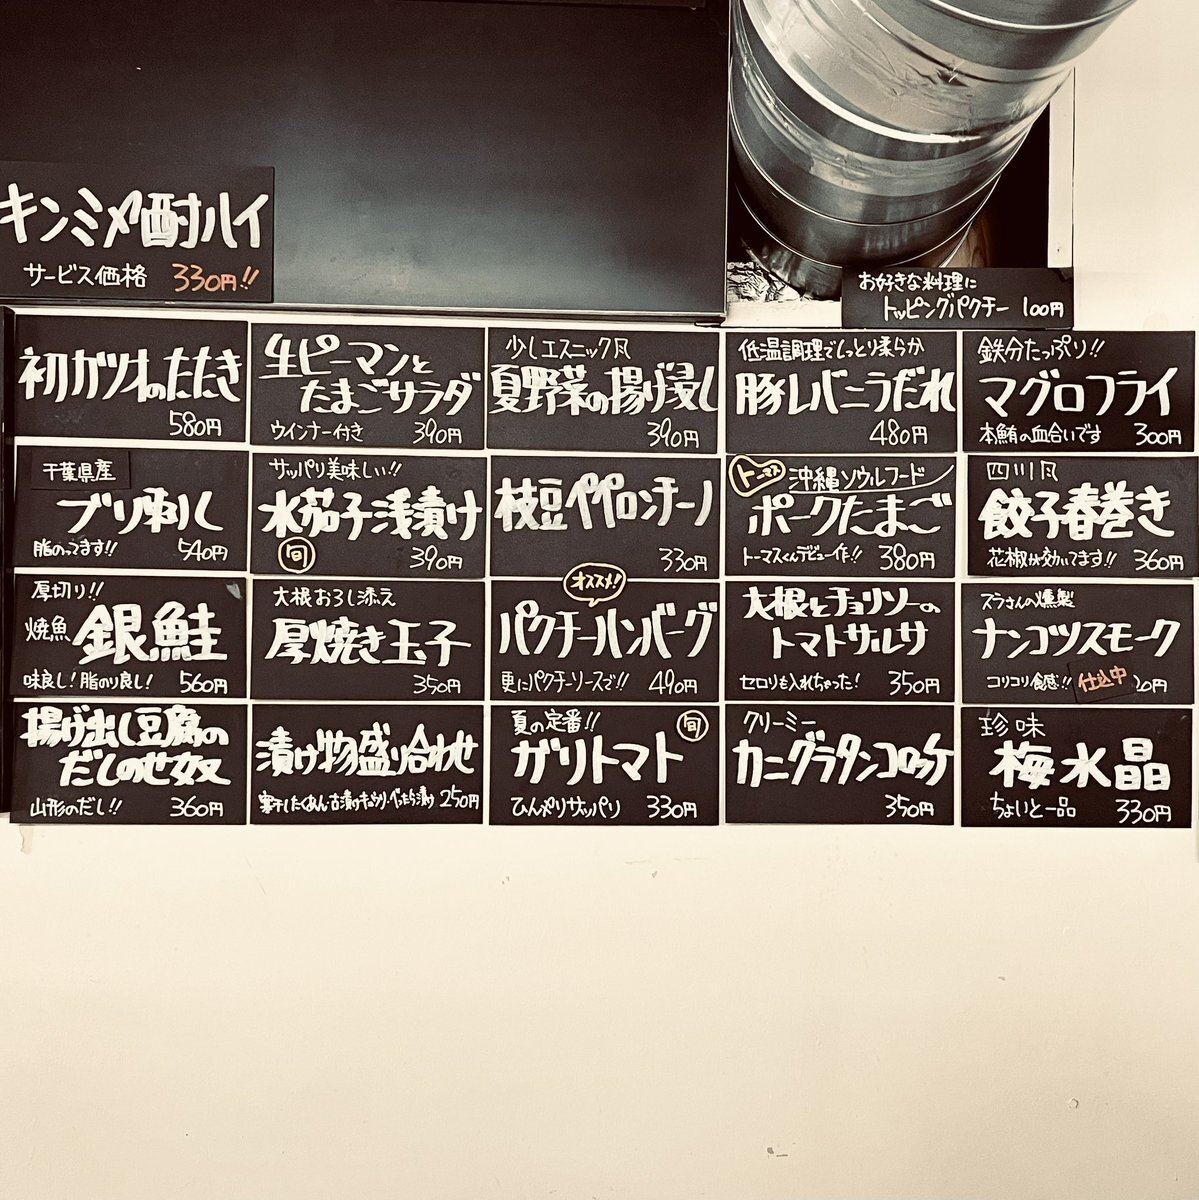 キンミヤ酎ハイ
サービス価格 330円!!
お好きな料理に
トッピングパクチー 100円
初ガツオのたたき
580円
生ピーマンと
たまごサラダ
ウインナー付き 390円
少しエスニック風
夏野菜の揚げ浸し
390円
低温調理でしっとり柔らか
豚レバニラだれ
480円
鉄分たっぷり!!
マグロフライ
本鮪の血合いです 300円
千葉県産
ブリ刺し
脂のってます!! 540円
サッパリ美味しい!!
水茄子浅漬け
旬 390円
枝豆ペペロンチーノ
330円
トーマス 沖縄ソウルフード
ポークたまご
トーマスくんデビュー作!! 380円
四川風
餃子春巻き
花椒が効いてます!! 360円
厚切り!!
焼魚 銀鮭
味良し!脂のり良し! 560円
大根おろし添え
厚焼き玉子
350円
オススメ!
パクチーハンバーグ
更にパクチーソースで!! 490円
大根とチョリソーの
トマトサルサ
セロリも入れちゃった! 350円
ズラさんの燻製
ナンコツスモーク
コリコリ食感!! 仕込中 20円
揚げ出し豆腐の
だしのせ奴
山形のだし!! 360円
漬け物盛り合わせ
寒干したくあん・古漬けキュウリ・べったら漬け 250円
夏の定番!! 旬
ガリトマト
ひんやりサッパリ 330円
クリーミー
カニグラタンコロッケ
350円
珍味
梅水晶
ちょいと一品 330円